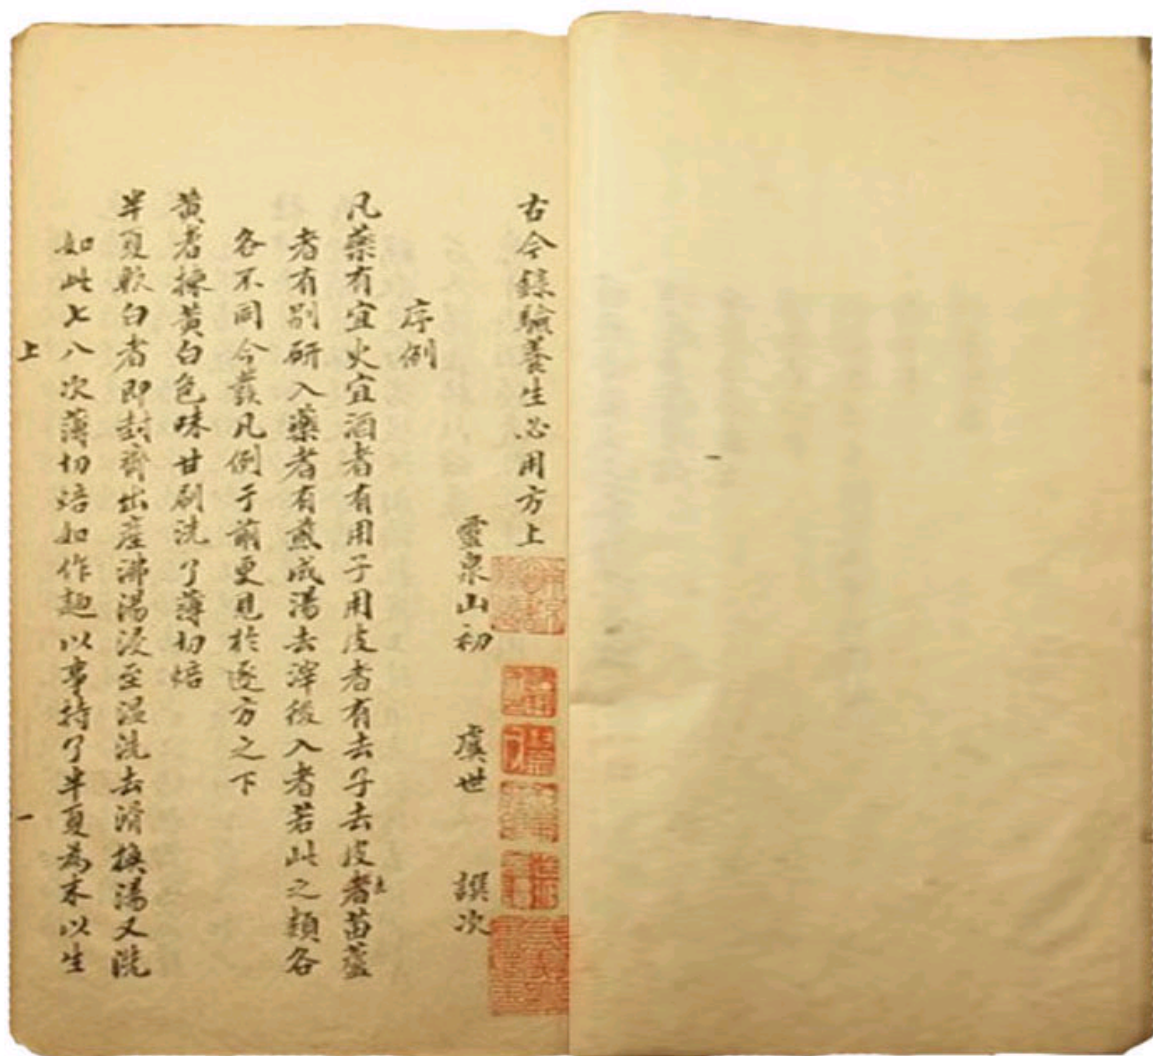 古今錄驗養生必用方上
靈泉山初 虞世 譔次
序例
凡藥有宜火宜酒者有用子用皮者有去子去皮者苗蘆
者有別研入藥者有煎成湯去滓後入者若此之類各
各不同今發凡例于前更見於逐方之下
黃耆揀黃白色味甘刷洗了薄切焙
半夏軟白者即封齊出產沸湯浸至温洗去滑換湯又洗
如此七八次薄切焙如作麯以事持了半夏為末以生
上 一